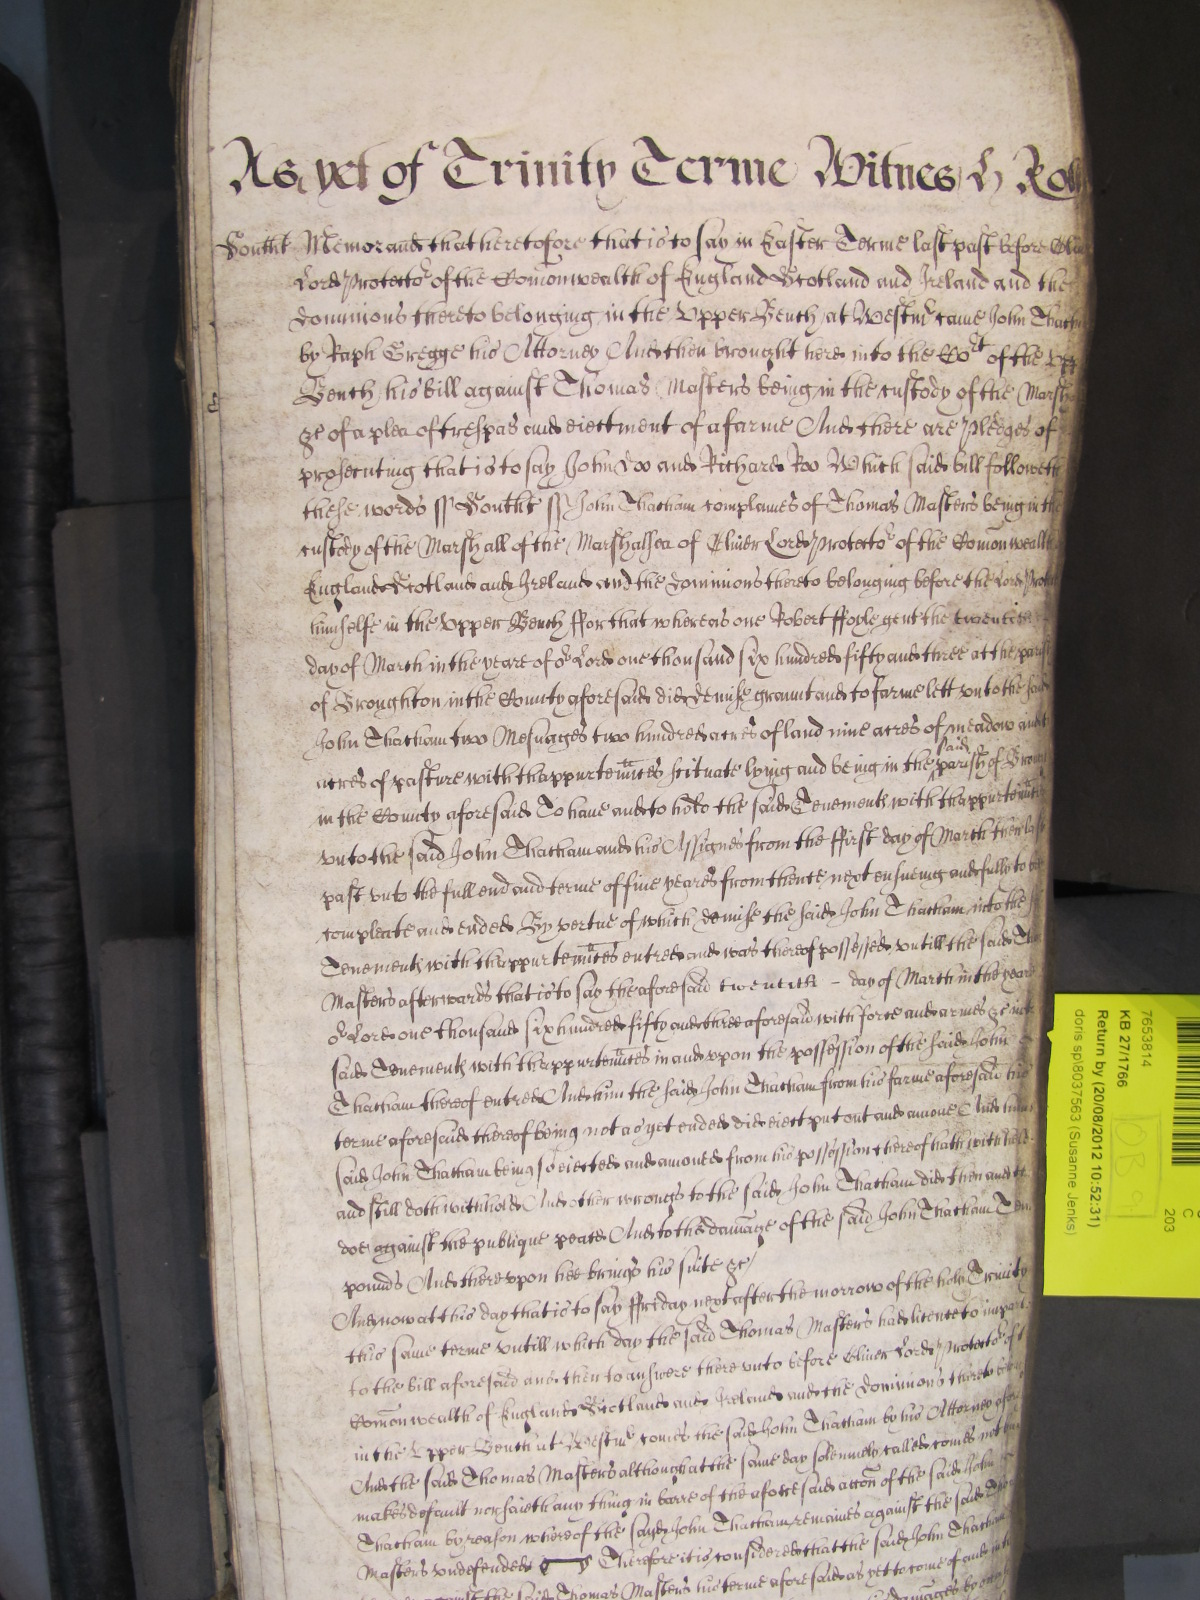 As yet of Trinity Terme Witnes H Roll
Southt Memorand that heretofore that is to say in Easter Terme last past before Oliver
Lord Protector of the Comonwealth of England Scotland and Ireland and the
dominions thereto belonging in the Upper Bench at Westmr came John Thatcham
by Raph Gregge his Attorney And then brought here into the Cort of the Upp
Bench his bill against Thomas Masters being in the custody of the Marsh
&c of a plea of trespas and eiectment of a farme And there are Pledges of
prosecuting that is to say John Doo and Richard Roo Which said bill followeth
these words ss Southt ss John Thatcham complaines of Thomas Masters being in the
custody of the Marshall of the Marshalsea of Oliver Lord Protector of the Comonwealth
England Scotland and Ireland and the dominions thereto belonging before the Lord Prote
himselfe in the Upper Bench ffor that whereas one Robert ffoyle gent the twentieth
day of March in the yeare of or Lord one thousand six hundred fifty and three at the parish
of Broughton in the County aforesaid did demise graunt and to farme lett vnto the said
John Thatcham two Mesuages two hundred acres of land nine acres of meadow and
acres of pasture with thappurtennces scituate lying and being in the said parish of Brough
in the County aforesaid To haue and to hold the said Tenements with thappurtennces
vnto the said John Thatcham and his Assignes from the ffirst day of March then last
past vnto the full end and terme of fiue yeares from thence next ensueing and fully to bee
compleate and ended By vertue of which demise the said John Thatcham into the
Tenements with thappurtennces entred and was thereof possessed vntill the said Tho
Masters afterwards that is to say the aforesaid twentieth - day of March in the yeare
or Lord one thousand six hundred fifty and three aforesaid with force and armes &c into
said Tenements with thappurtennces in and vpon the possession of the said John
Thatcham thereof entred And him the said John Thatcham from his farme aforesaid his
terme aforesaid thereof being not as yet ended did eiect put out and amoue And him
said John Thatcham being so eiected and amoued from his possession thereof hath withheld
and still doth withhold And other wrongs to the said John Thatcham did then and th
doe against the publique peace And to the damage of the said John Thatcham Ten
pounds And therevpon hee brings his suite &c
And now at this day that is to say ffriday next after the morrow of the holy Trinity
this same terme vntill which day the said Thomas Masters had licence to imparl
to the bill aforesaid and then to answere there vnto before Oliver Lord Protector of t
Comonwealth of England Scotland and Ireland and the dominions thereto belon
in the Upper Bench at Westmr comes the said John Thatcham by his Attorney afore
And the said Thomas Masters although at the same day solemnely called comes not but
makes default nor saieth any thing in barre of the aforesaid accon of the said John
Thatcham by reason whereof the said John Thatcham remaines against the said Tho
Masters vndefended Therefore it is considered that the said John Thatcham
against the said Thomas Masters his terme aforesaid as yet to come of and in
damages by
7653814
KB 27/1766
Return by (20/08/2012 10:52:31)
doris sp\8037563 (Susanne Jenks)
C
203